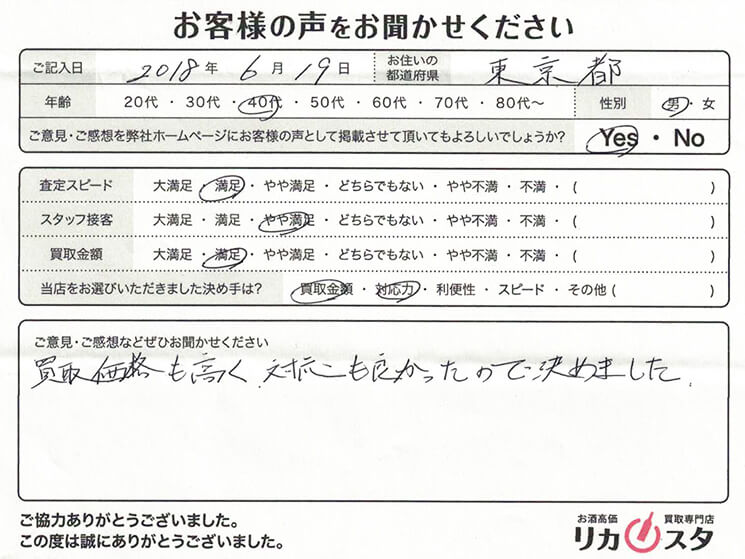 お客様の声をお聞かせください
ご記入日 2018 年 6 月 19 日 お住いの都道府県 東京都
年齢 20代 ・ 30代 ・ 40代 ・ 50代 ・ 60代 ・ 70代 ・ 80代〜 性別 男 ・ 女
ご意見・ご感想を弊社ホームページにお客様の声として掲載させて頂いてもよろしいでしょうか? Yes ・ No
査定スピード 大満足 ・ 満足 ・ やや満足 ・ どちらでもない ・ やや不満 ・ 不満 ・ ( )
スタッフ接客 大満足 ・ 満足 ・ やや満足 ・ どちらでもない ・ やや不満 ・ 不満 ・ ( )
買取金額 大満足 ・ 満足 ・ やや満足 ・ どちらでもない ・ やや不満 ・ 不満 ・ ( )
当店をお選びいただきました決め手は? 買取金額 ・ 対応力 ・ 利便性 ・ スピード ・ その他 ( )
ご意見・ご感想などぜひお聞かせください
買取価格も高く 対応も良かったので決めました
ご協力ありがとうございました。
この度は誠にありがとうございました。
お酒高価 買取専門店
リカスタ